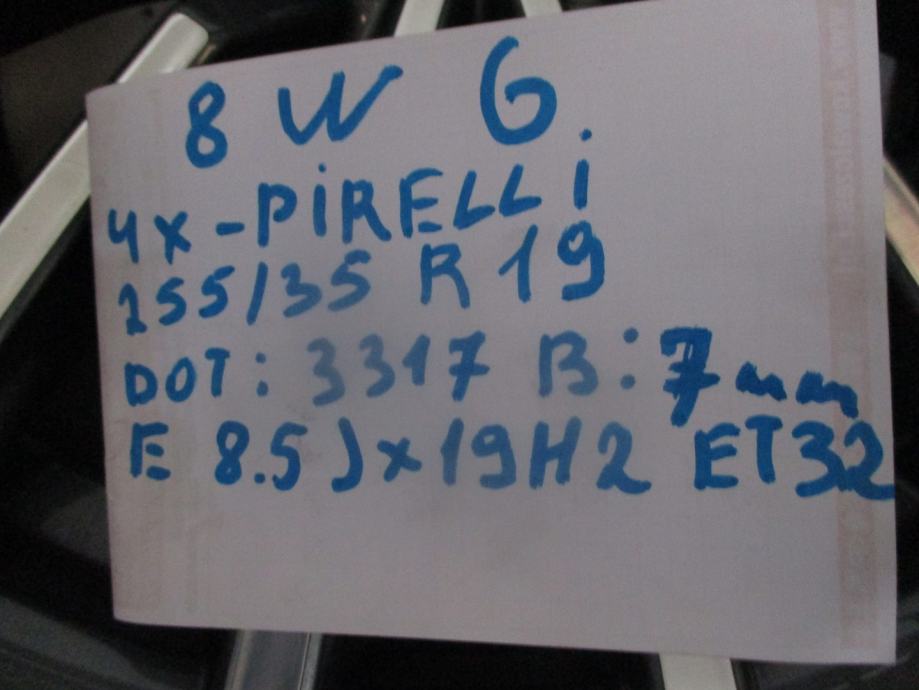 8 W 6.
4x-PiRELLi
255/35 R19
DOT: 3317 B: 7mm
E 8.5Jx19H2 ET32